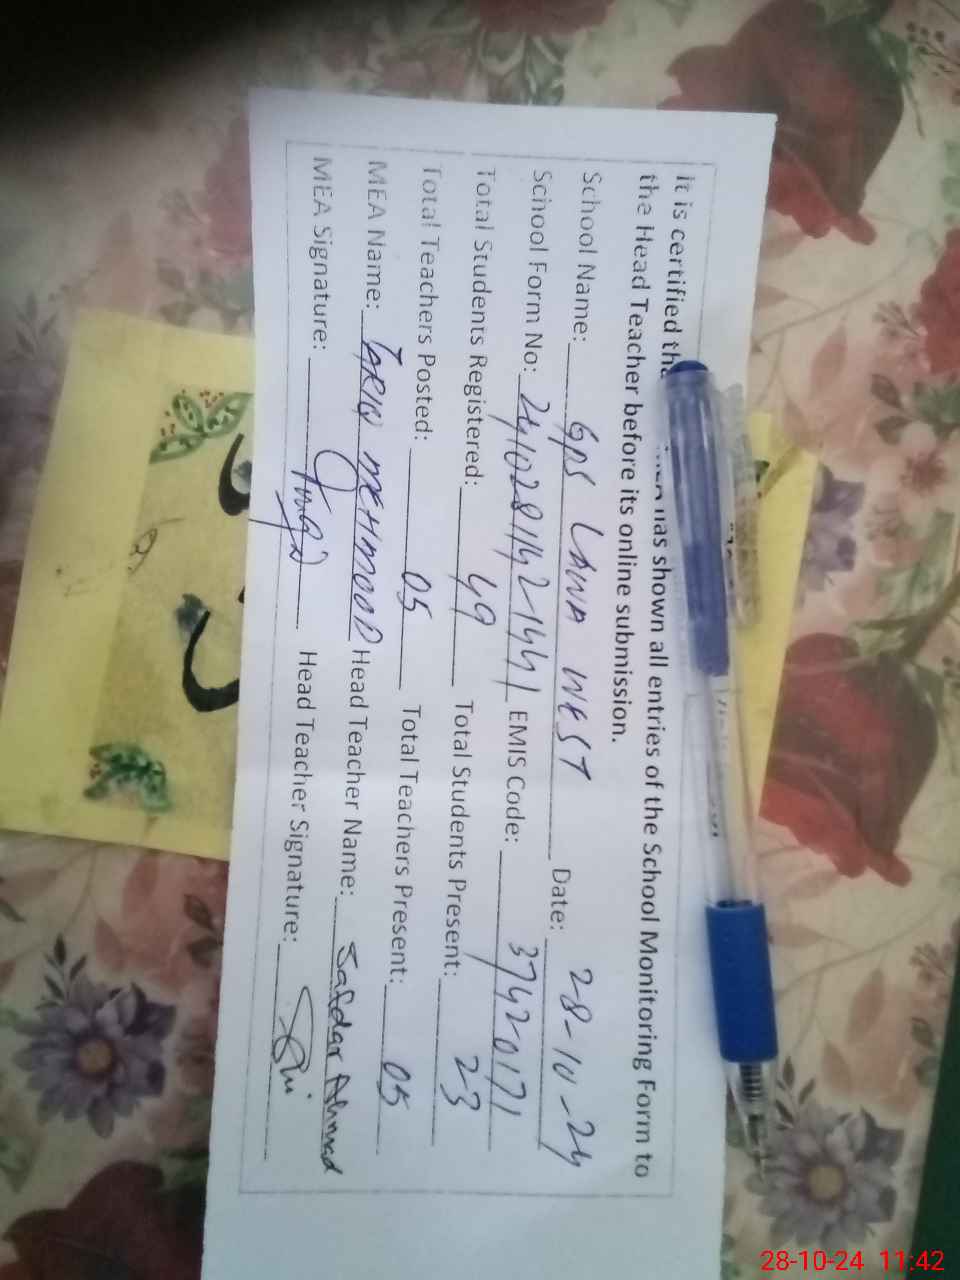 It is certified tha has shown all entries of the School Monitoring Form to
the Head Teacher before its online submission.
School Name: GPS LAWA WEST Date: 28-10-24
School Form No: EMIS Code: 37420171
Total Students Registered: 49 Total Students Present: 23
Total Teachers Posted: 05 Total Teachers Present: 05
MEA Name: TARIQ MEHMOOD Head Teacher Name: Safdar Ahmad
MEA Signature: Head Teacher Signature:
28-10-24 11:42